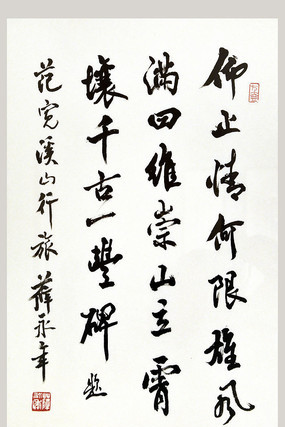 仰止情何限雄风
满四维崇山立霄
壤千古一丰碑 题
范宽溪山行旅 薛永年